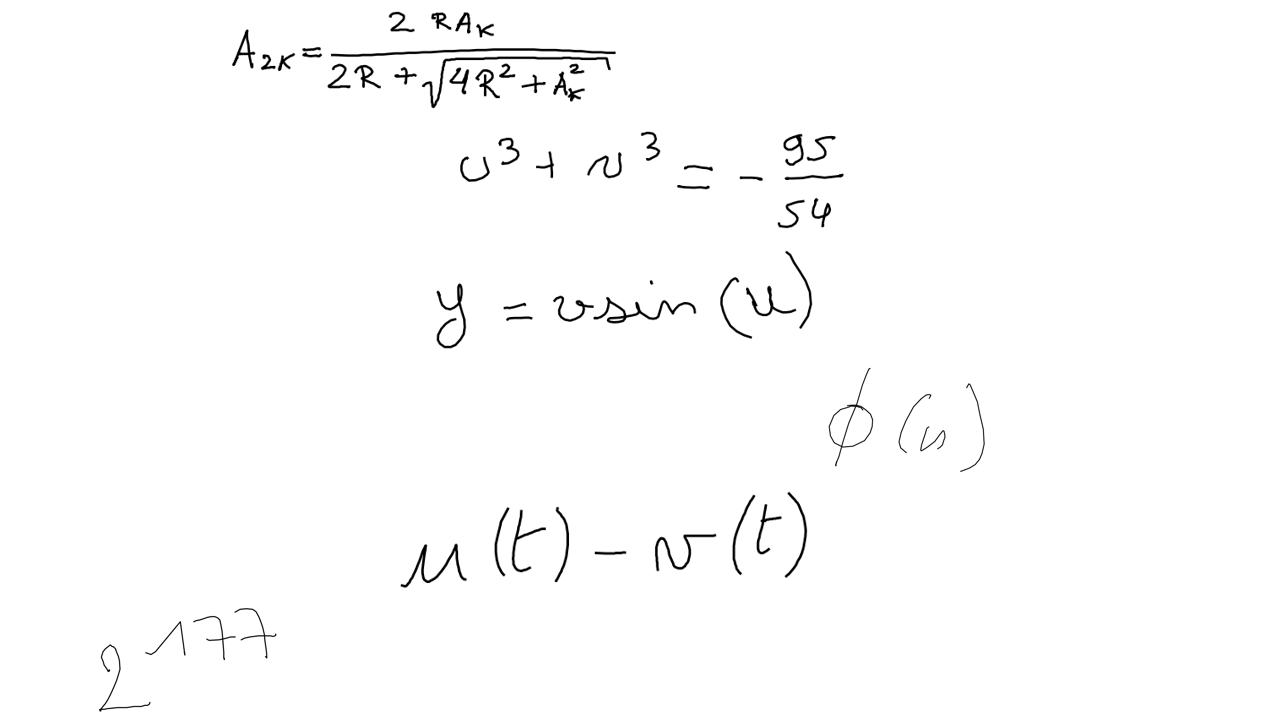 A_{2K} = \frac{2 R A_K}{2R + \sqrt{4R^2 + A_K^2}}
u^3 + v^3 = -\frac{95}{54}
y = v sin(u)
ϕ(n)
u(t) - v(t)
2^{177}